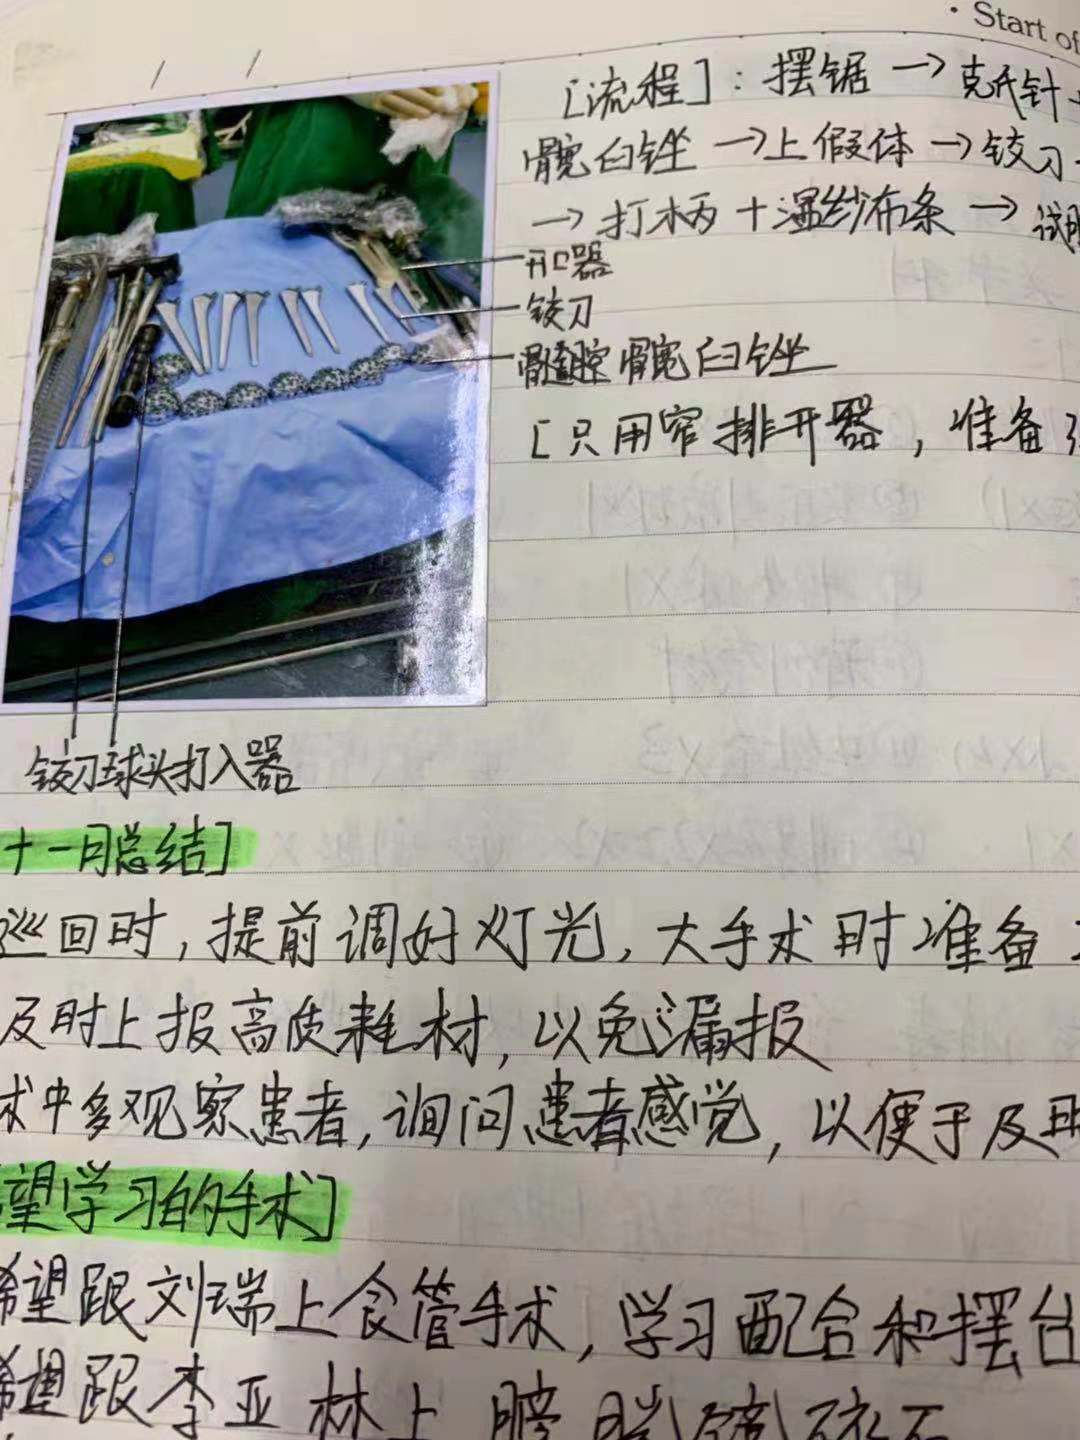 · Start of
[流程]：摆锯 → 克氏针
髋臼锉 → 上假体 → 铰刀
→ 打柄 + 湿纱布条 → 试
开口器
铰刀
髓腔髋臼锉
[只用窄排开器，准备
铰刀球头打入器
十一月总结]
巡回时，提前调好灯光，大手术时准备
及时上报高质耗材，以免漏报
术中多观察患者，询问患者感觉，以便于及时
望学习的手术]
希望跟刘瑞上食管手术，学习配合和摆台
希望跟李亚林上膀胱